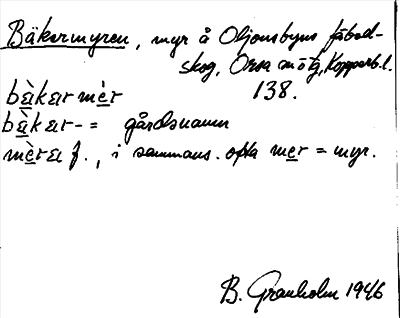 Bäkermyren, myr å Oljonsbyns fäbod-
skog, Orsa            Kopparb. l.
bäkar mèr                    138.
bäkar- = gårdsnamn
mèra f., i sammans. ofta mer = myr.
B. Granholm 1946